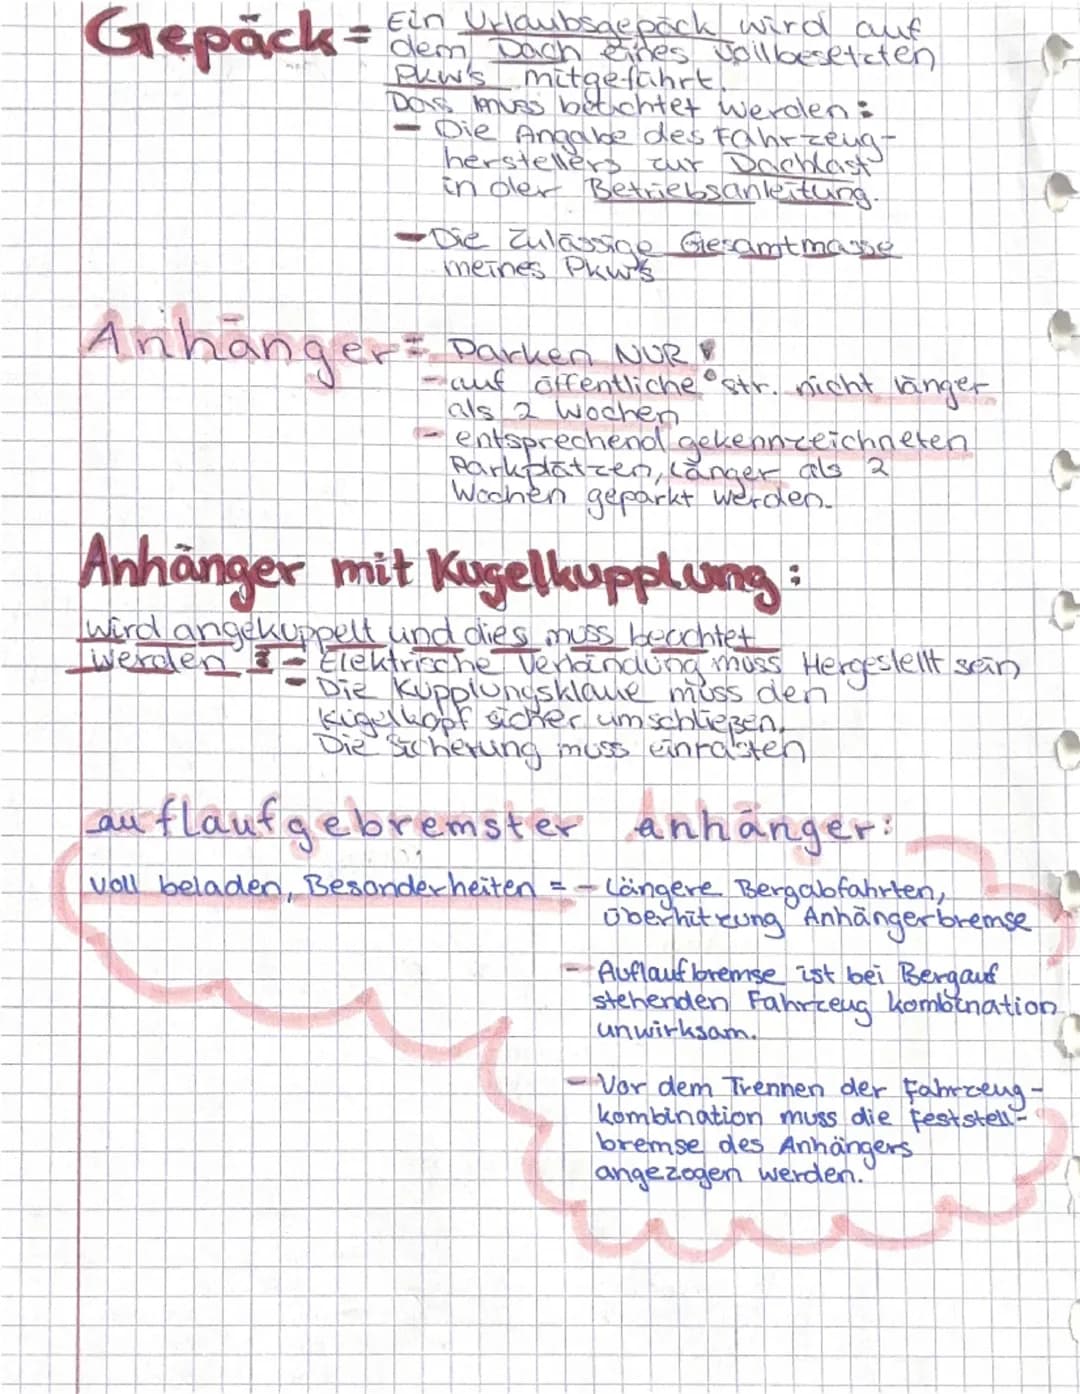 Gepäck = Ein Urlaubsgepäck wird auf
dem Dach eines vollbesetzten
Pkw's mitgeführt.
Das muss beachtet werden:
- Die Angabe des Fahrzeug-
herstellers zur Dachlast
in der Betriebsanleitung.
- Die Zulässige Gesamtmasse
meines Pkw's
Anhänger = Parken NUR!
- auf öffentliche str. nicht länger
als 2 Wochen
- entsprechend gekennzeichneten
Parkplätzen, länger als 2
Wochen geparkt werden.
Anhänger mit Kugelkupplung:
wird angekuppelt und dies muss beachtet
werden: - Elektrische Verbindung muss Hergestellt sein
- Die Kupplungsklaue muss den
Kugelkopf sicher umschließen,
Die Sicherung muss einrasten
auflaufgebremster anhänger:
voll beladen, Besonderheiten = - Längere Bergabfahrten,
überhitzung Anhängerbremse
- Auflaufbremse ist bei Bergauf
stehenden Fahrzeug kombination
unwirksam.
- Vor dem Trennen der Fahrzeug-
kombination muss die feststell-
bremse des Anhängers
angezogen werden.